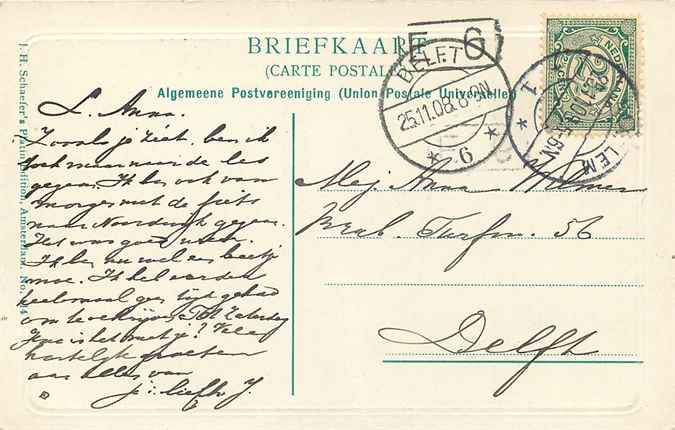 BRIEFKAART
(CARTE POSTALE)
Algemeene Postvereeniging (Union Postale Universelle)
E 6
DELFT
25.11.08. 8-9N
6
NEDERLAND
LEM
5-6N
1
J. H. Schaefer's Platin Edition, Amsterdam. No.
L. Anna.
Zooals je ziet, ben ik
toch maar naar de les
gegaan. Ik ben ook van
morgen met de fiets
naar Noordwijk gegaan.
Het was goed weer.
Ik ben nu wel een beetje
moe. Ik heb
heelemaal geen tijd gehad
om te schrijven. Tot Zaterdag
Hoe is het met je? Vele
hartelijke groeten
aan allen van
je liefh. J.
Mej. Anna
Brab. Turfm. 56
Delft